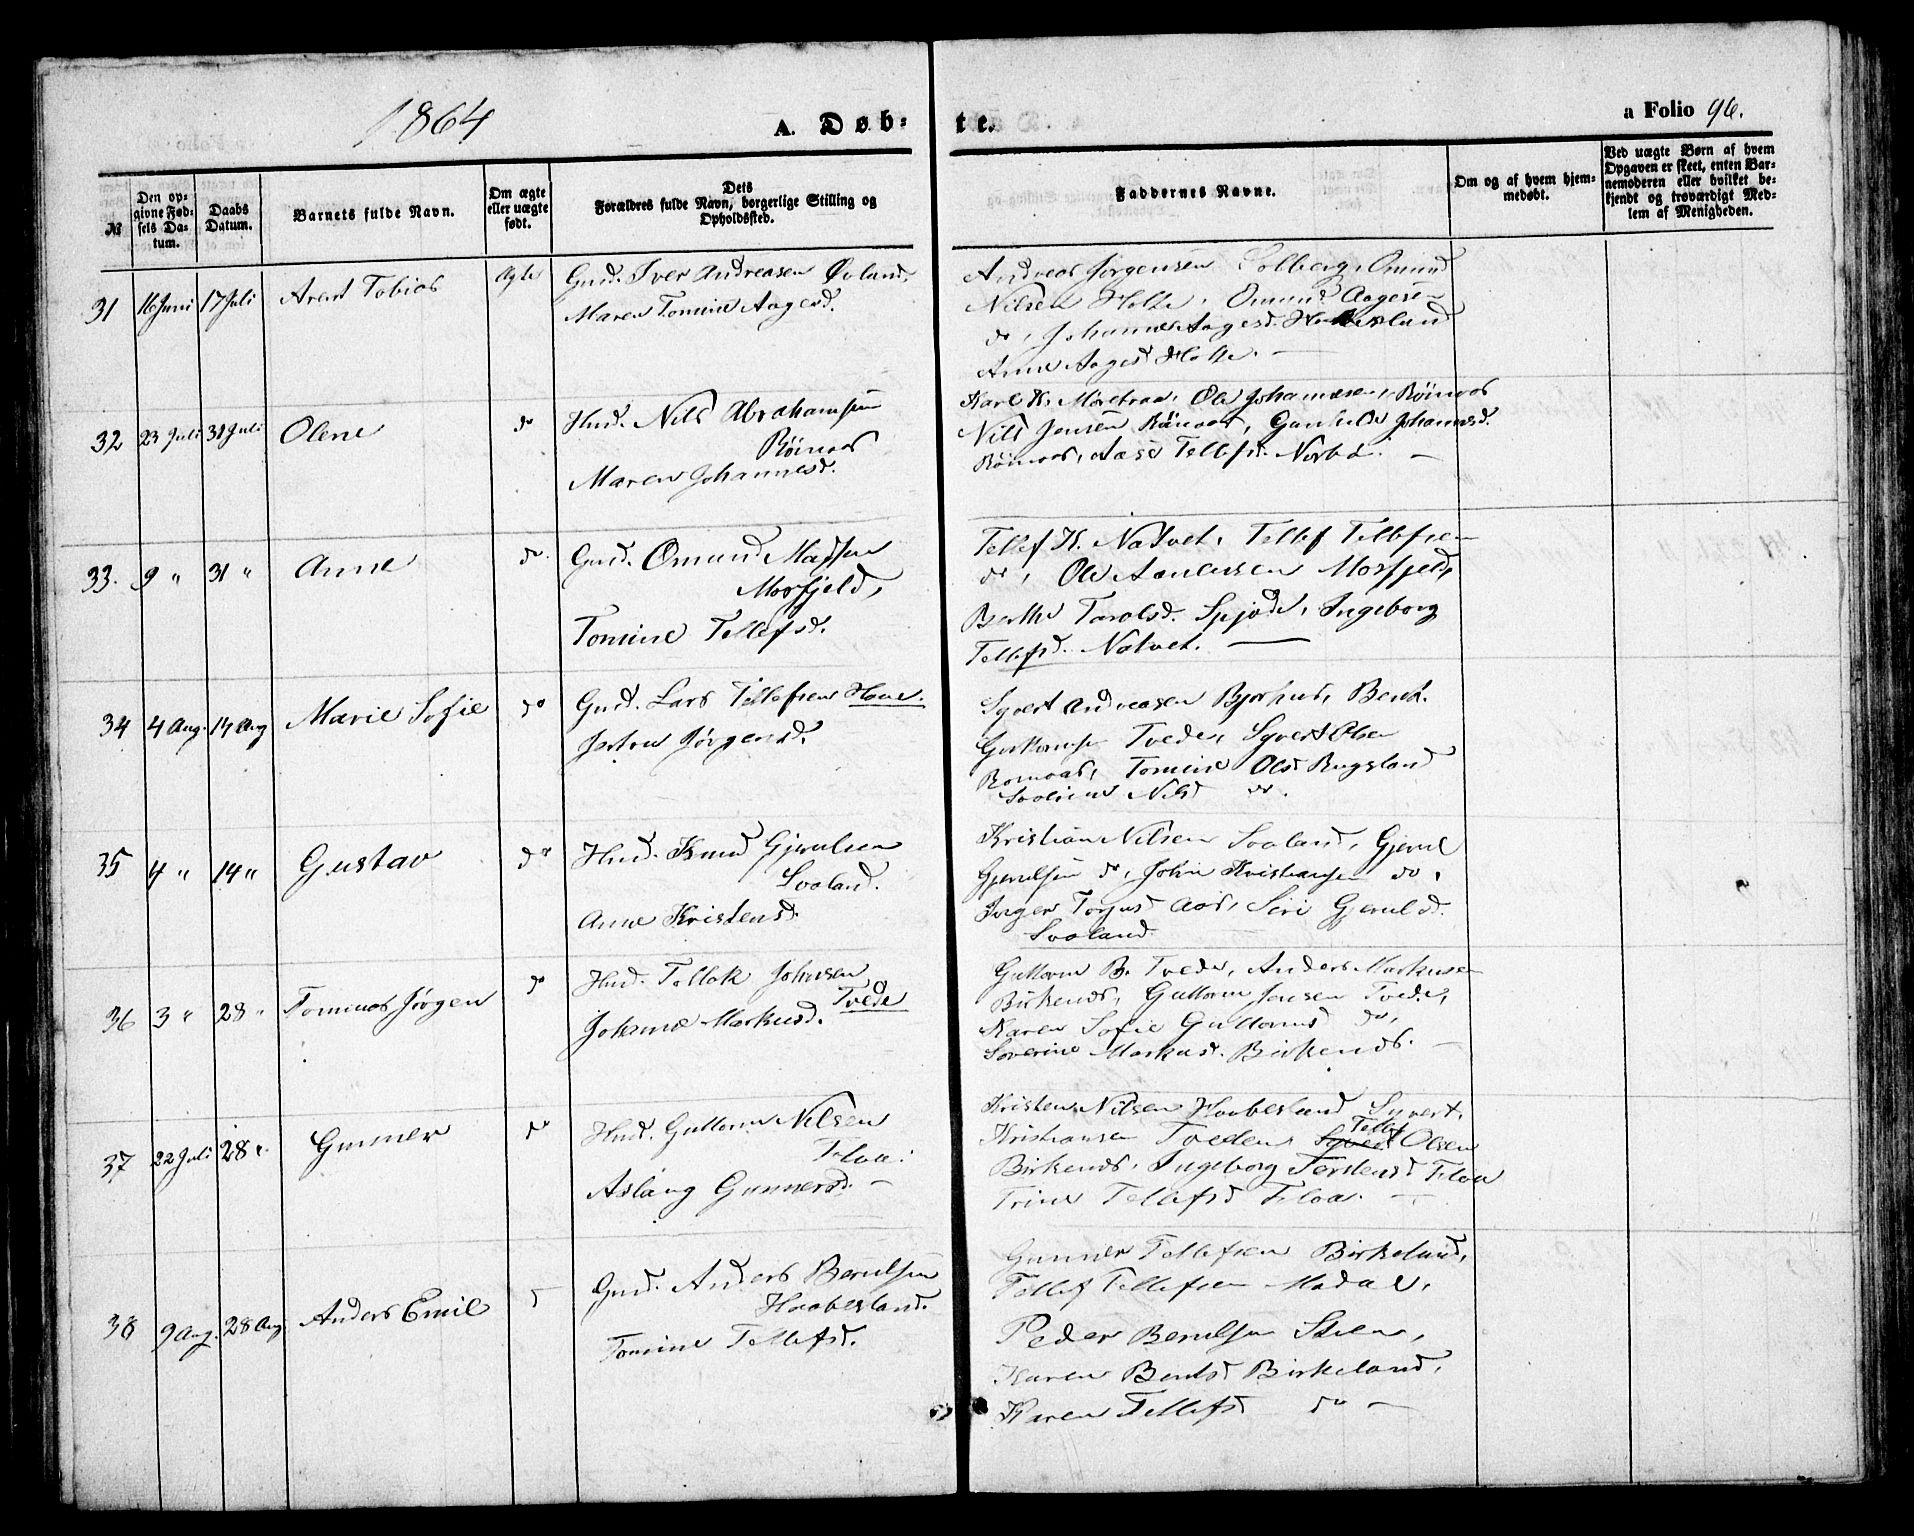 1864
A. Døb-
te.
a Folio 96.
№
Den op-
givne Fød-
sels Da-
tum.
Daabs
Datum.
Barnets fulde Navn.
Om ægte
eller uægte
født.
Dets
Forældres fulde Navn, borgerlige Stilling og
Opholdssted.
Faddernes Navne.
Om og af hvem hjem-
medøbt.
Ved uægte Børn af hvem
Opgaven er skeet, enten Bar-
nemoderen eller hvilket be-
kjendt og troværdigt Med-
lem af Menigheden.
31 16 Juni 17 Juli Arent Tobias Ægte Gmd. Iver Andreasen Øvland,
Maren Tomine Aagesd.
Andreas Jørgensen Solberg, Omund
Nilsen Holte, Omund Aagesen
do, Johanne Aagesd.
Anne Aagesd Holte. —
32 23 Juli 31 Juli Olene do Husd. Nils Abrahamsen
Røinaas
Maren Johannesd.
Karl K. Ole Johannesen, Røinaas
Nils Jensen Røinaas, Gunhilde Johannesd.
Røinaas, Aase Tellefsd. —
33. 9 " 31 " Anne do. Gmd. Omund Madsen
Mosfjeld,
Tomine Tellefsd.
Tellef K. Natvet, Tellef Tellefsen
do, Ole Mosfjeld,
Berthe Tarolsd. Ingeborg
Tellefsd. Natvet. —
34 4 Aug. 14 Aug Marie Sofie do Gmd. Lars Tellefsen
Jørgensd.
Syvert Andreasen Bjorhus, Bent
Guttormsen Tvede, Syvert Olsen
Tomine Olsd
Nilsd do.
35 4 " 14 " Gustav do Husd. Knud Gjerulsen
Svaland.
Anne Kristensd.
Kristian Nilsen Svaland, Gjerul
Gjerulsen do, John Kristiansen do,
Torjusd Aas, Siri Gjerulsd.
Svaland.
36 3 " 28 " Tomines Jørgen do Husd. Tellok Johnsen
Tvede
Johanne Markusd.
Guttorm B. Tvede, Anders Markusen
Birkenes, Guttorm Jensen Tvede,
Karen Sofie Guttormsd do,
Severine Markusd. Birkenes. —
37 22 Juli 28 " Gunner do Husd. Guttorm Nilsen
Floa.
Aslaug Gunnersd. —
Kristen Nilsen Haabesland Syvert
Tellef
Kristiansen Tveden, Syvert Olsen
Birkenes, Ingeborg Terkelsd Floa
Trine Tellefsd Floa. —
38 9 Aug. 28 Aug Anders Emil Gmd. Anders Berulsen
Haabesland.
Tomine Tellefsd.
Gunner Tellefsen Birkeland,
Tellef Tellefsen
Peder Berulsen Steen,
Karen Bentsd Birkeland,
Karen Tellefsd do —